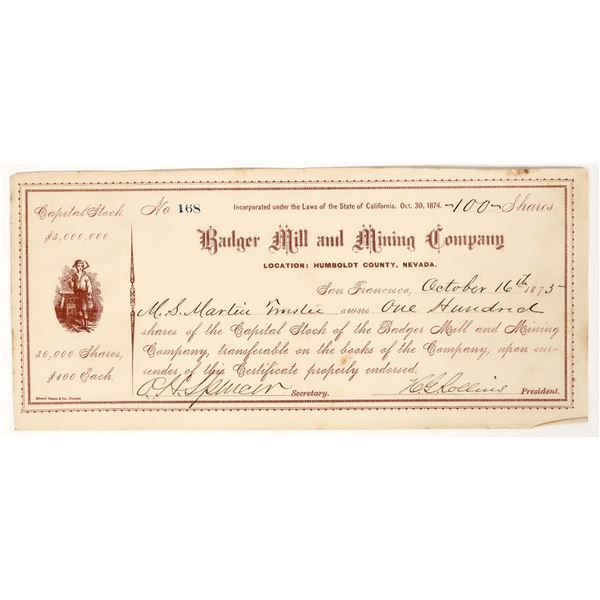 Capital Stock
$3,000,000.
30,000 Shares,
$100 Each.
No 168
Incorporated under the Laws of the State of California. Oct. 30, 1874.
~100~ Shares.
Badger Mill and Mining Company
LOCATION: HUMBOLDT COUNTY, NEVADA.
San Francisco, October 16th 1875
M. S. Martin Trustee owns One Hundred
shares of the Capital Stock of the Badger Mill and Mining
Company, transferable on the books of the Company, upon sur-
render of this Certificate properly endorsed.
Spencer Secretary. Rollins President.